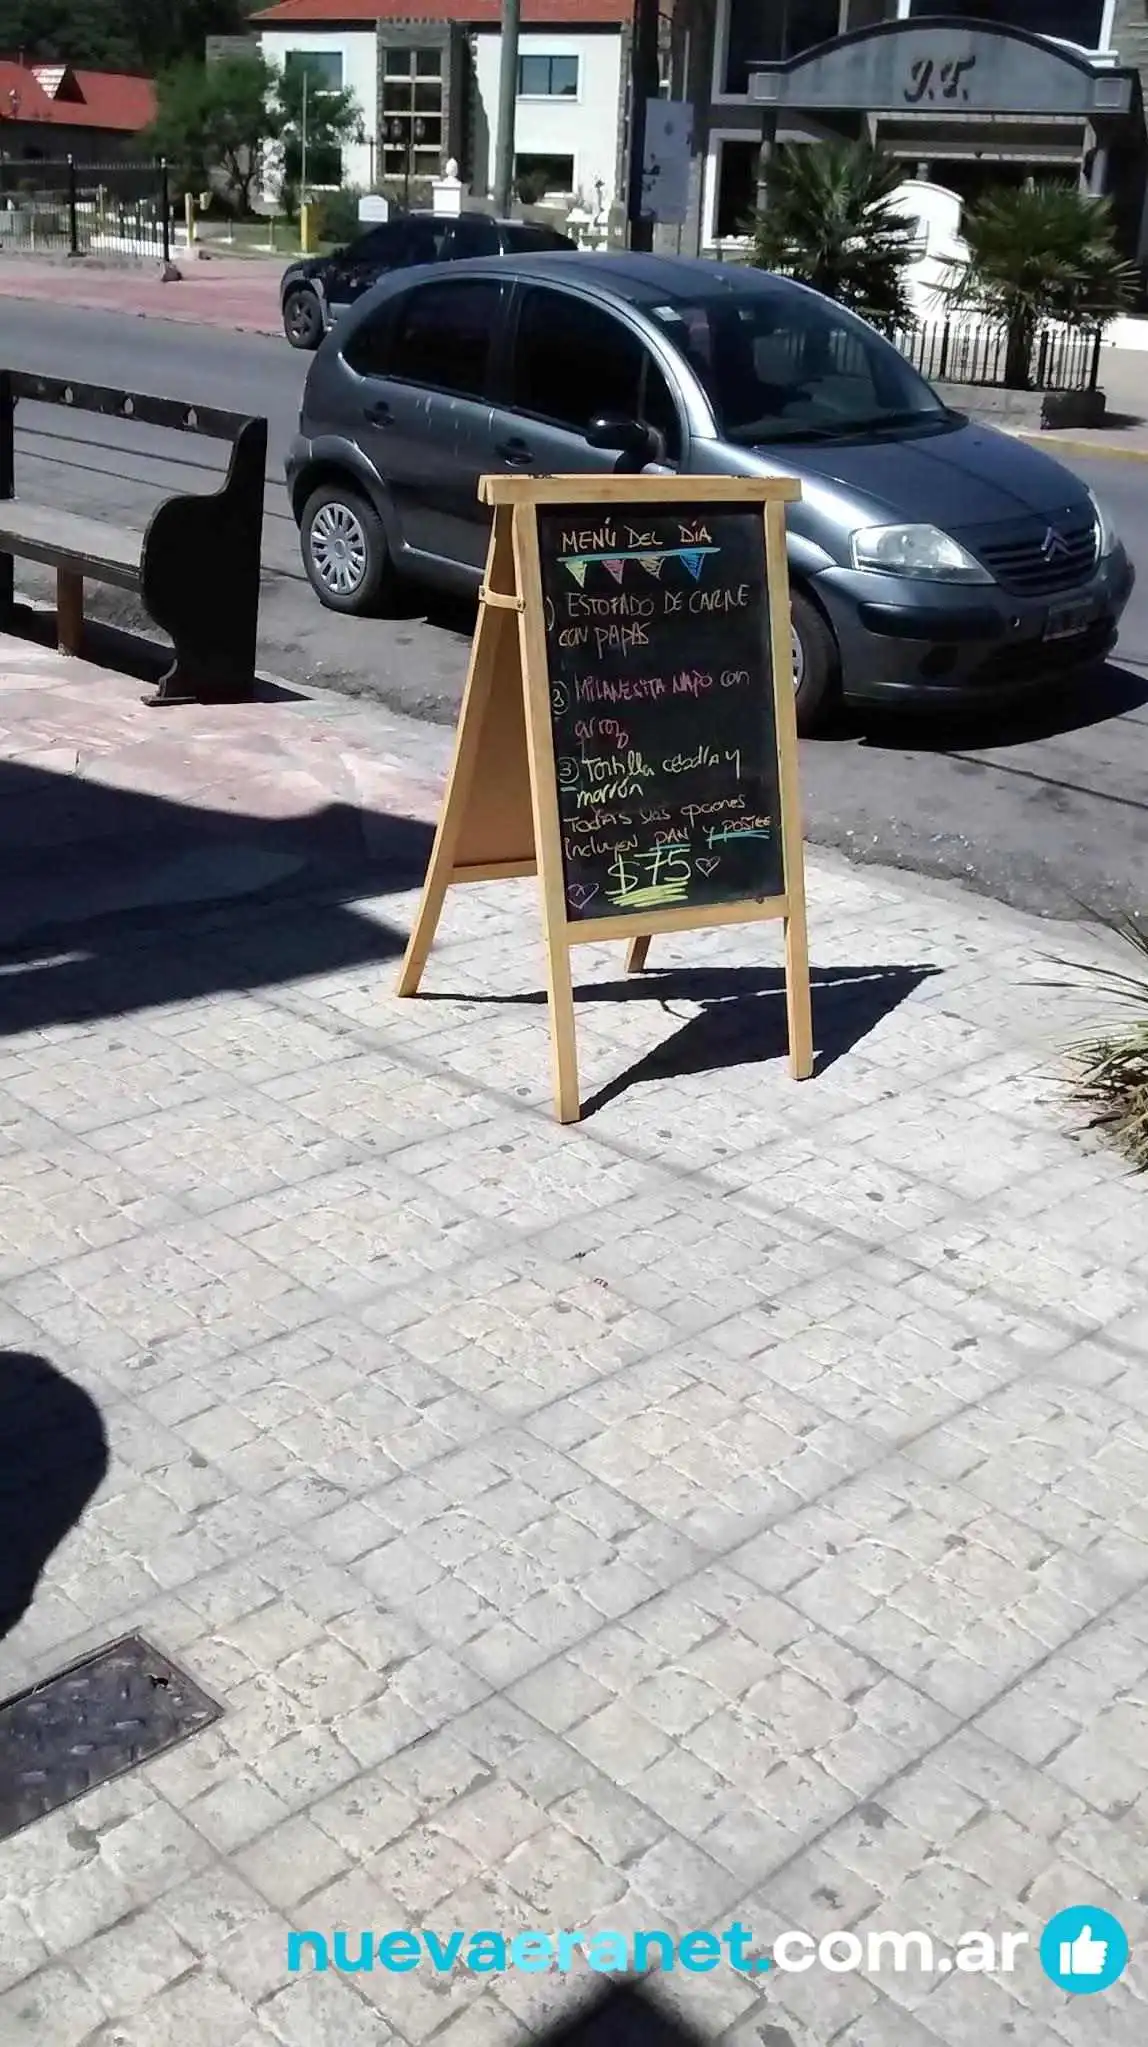 J.F.
MENÚ DEL DÍA
) ESTOFADO DE CARNE
CON PAPAS
MILANESITA NAPO con
arroz
3 Tortilla cebolla y
morrón
Todas las opciones
incluyen PAN Y POSTRE
$75
nuevaeranet.com.ar